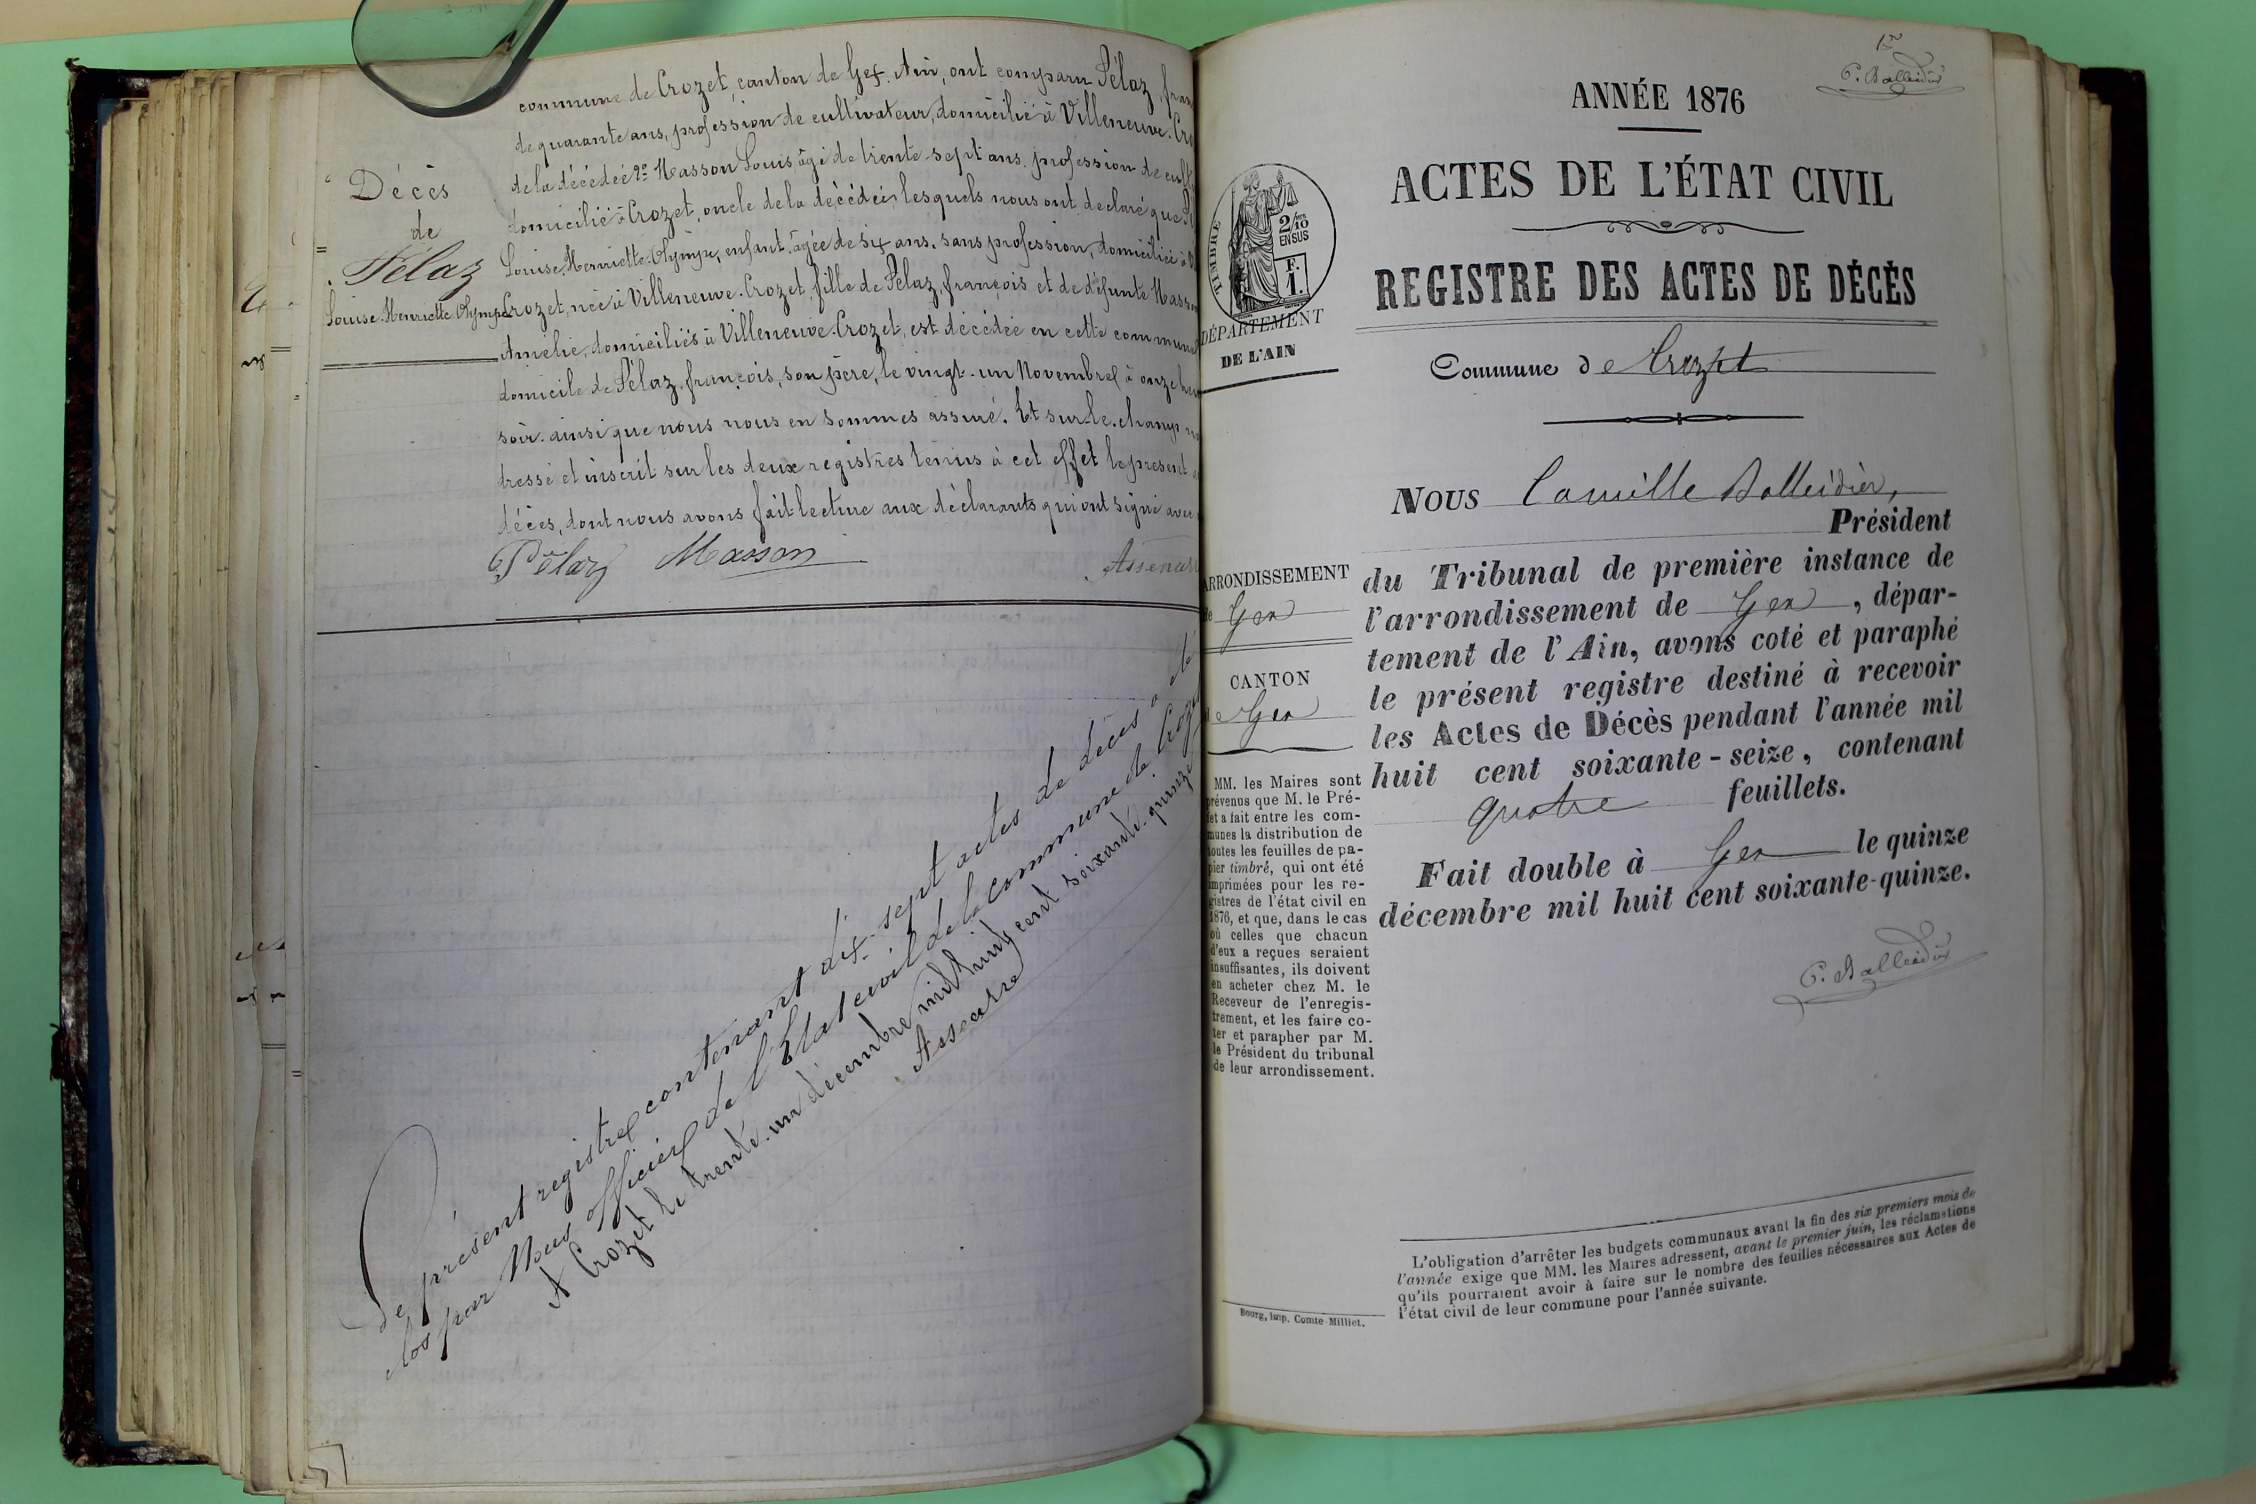 commune de Crozet, canton de Gex, Ain, ont comparu Pélaz,
de quarante ans, profession de cultivateur, domicilié à Villeneuve-
de la décédée 2º Masson Louis âgé de trente-sept ans, profession de
domicilié à Crozet, oncle de la décédée, lesquels nous ont déclaré que
Louise Henriette Olympe, enfant, âgée de six ans, sans profession, domiciliée à
Crozet, née à Villeneuve-Crozet, fille de Pélaz, françois et de défunte Masson
Amélie, domiciliés à Villeneuve-Crozet, est décédée en cette commune
domicile de Pélaz, françois, son père, le vingt-un Novembre à onze
soir, ainsi que nous nous en sommes assuré. Et sur le champ
dressé et inscrit sur les deux registres tenus à cet effet le présent
décès, dont nous avons fait lecture aux déclarants qui ont signé avec
Pélaz Masson
Décès
de
Pélaz
Louise Henriette Olympe
Le présent registre contenant dix-sept actes de décès a été
clos par Nous officier de l'Etat civil de la commune de Crozet
A Crozet le trente-un décembre mil huit cent soixante-quinze
1er
C. Balleidier
ANNÉE 1876
ACTES DE L'ÉTAT CIVIL
REGISTRE DES ACTES DE DÉCÈS
Commune de Crozet
TIMBRE
2/10
EN SUS
F.
1.
DÉPARTEMENT
DE L'AIN
Nous Camille Balleidier,
Président
du Tribunal de première instance de
l'arrondissement de Gex, dépar-
tement de l'Ain, avons coté et paraphé
le présent registre destiné à recevoir
les Actes de Décès pendant l'année mil
huit cent soixante-seize, contenant
quatre feuillets.
Fait double à Gex le quinze
décembre mil huit cent soixante-quinze.
C. Balleidier
ARRONDISSEMENT
de Gex
CANTON
de Gex
MM. les Maires sont
prévenus que M. le Pré-
fet a fait entre les com-
munes la distribution de
toutes les feuilles de pa-
pier timbré, qui ont été
imprimées pour les re-
gistres de l'état civil en
1876, et que, dans le cas
où celles que chacun
d'eux a reçues seraient
insuffisantes, ils doivent
en acheter chez M. le
Receveur de l'enregis-
trement, et les faire co-
ter et parapher par M.
le Président du tribunal
de leur arrondissement.
L'obligation d'arrêter les budgets communaux avant la fin des six premiers mois de
l'année exige que MM. les Maires adressent, avant le premier juin, les réclamations
qu'ils pourraient avoir à faire sur le nombre des feuilles nécessaires aux Actes de
l'état civil de leur commune pour l'année suivante.
Bourg, imp. Comte-Milliet.